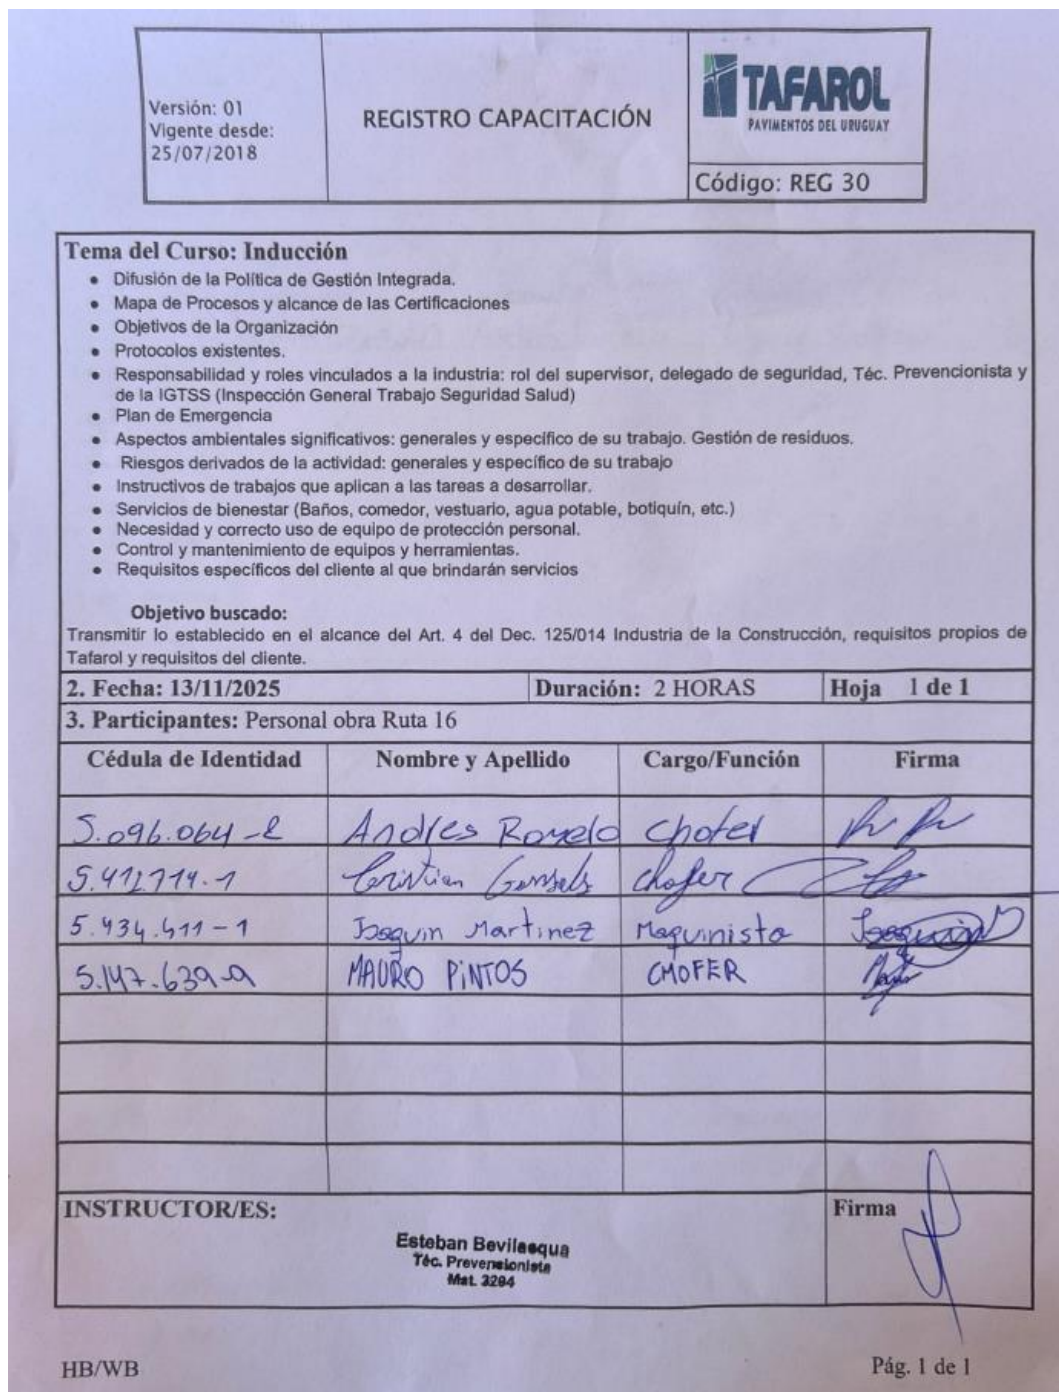 Versión: 01
Vigente desde:
25/07/2018
REGISTRO CAPACITACIÓN
TAFAROL
PAVIMENTOS DEL URUGUAY
Código: REG 30
Tema del Curso: Inducción
• Difusión de la Política de Gestión Integrada.
• Mapa de Procesos y alcance de las Certificaciones
• Objetivos de la Organización
• Protocolos existentes.
• Responsabilidad y roles vinculados a la industria: rol del supervisor, delegado de seguridad, Téc. Prevencionista y
de la IGTSS (Inspección General Trabajo Seguridad Salud)
• Plan de Emergencia
• Aspectos ambientales significativos: generales y específico de su trabajo. Gestión de residuos.
• Riesgos derivados de la actividad: generales y específico de su trabajo
• Instructivos de trabajos que aplican a las tareas a desarrollar.
• Servicios de bienestar (Baños, comedor, vestuario, agua potable, botiquín, etc.)
• Necesidad y correcto uso de equipo de protección personal.
• Control y mantenimiento de equipos y herramientas.
• Requisitos específicos del cliente al que brindarán servicios
Objetivo buscado:
Transmitir lo establecido en el alcance del Art. 4 del Dec. 125/014 Industria de la Construcción, requisitos propios de
Tafarol y requisitos del cliente.
2. Fecha: 13/11/2025 Duración: 2 HORAS Hoja 1 de 1
3. Participantes: Personal obra Ruta 16
Cédula de Identidad Nombre y Apellido Cargo/Función Firma
Andres chofer
Cristian chofer
Joaquin Martinez Maquinista Joaquin
MAURO PINTOS CHOFER
INSTRUCTOR/ES: Firma
Esteban Bevilacqua
Téc. Prevencionista
Mat. 3294
HB/WB Pág. 1 de 1